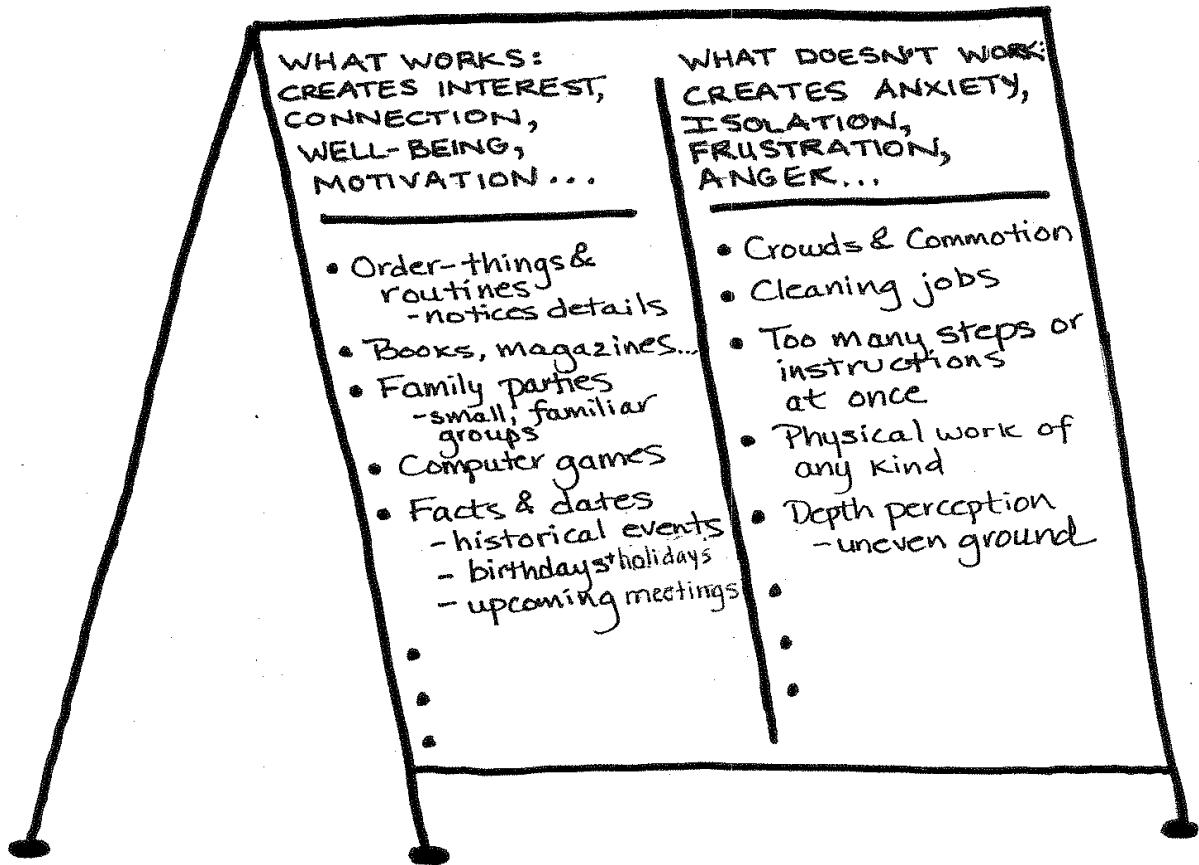 WHAT WORKS:
CREATES INTEREST,
CONNECTION,
WELL-BEING,
MOTIVATION...
• Order-things &
routines
-notices details
• Books, magazines...
• Family parties
-small, familiar
groups
• Computer games
• Facts & dates
-historical events
- birthdays+holidays
- upcoming meetings
•
•
•
WHAT DOESN'T WORK:
CREATES ANXIETY,
ISOLATION,
FRUSTRATION,
ANGER...
• Crowds & Commotion
• Cleaning jobs
• Too many steps or
instructions
at once
• Physical work of
any kind
• Depth perception
-uneven ground
•
•
•